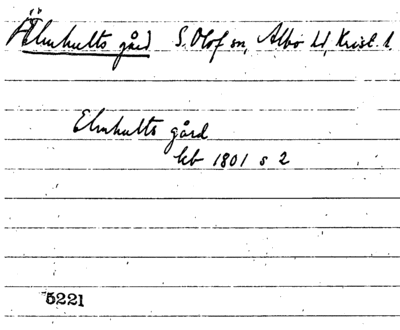 Älmhults gård S. Olof sn, Albo hd, Krist. l.
Elmhults gård
kb 1801 s 2
5221